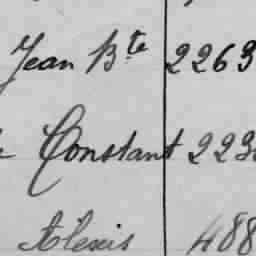 Jean Bte 2263
Constant 223
Alexis 488